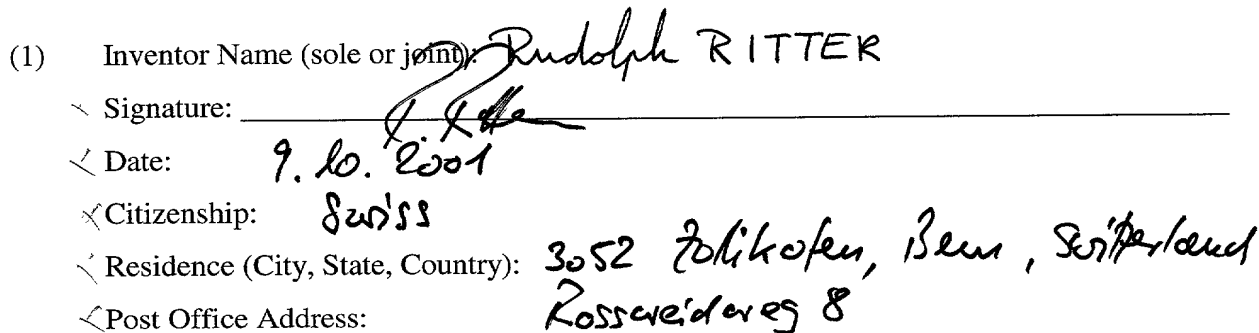 (1) Inventor Name (sole or joint): Rudolph RITTER
Signature: R. Ritter
Date: 9. 10. 2001
Citizenship: Swiss
Residence (City, State, Country): 3052 Zollikofen, Bern, Switzerland
Post Office Address: Rossweidweg 8